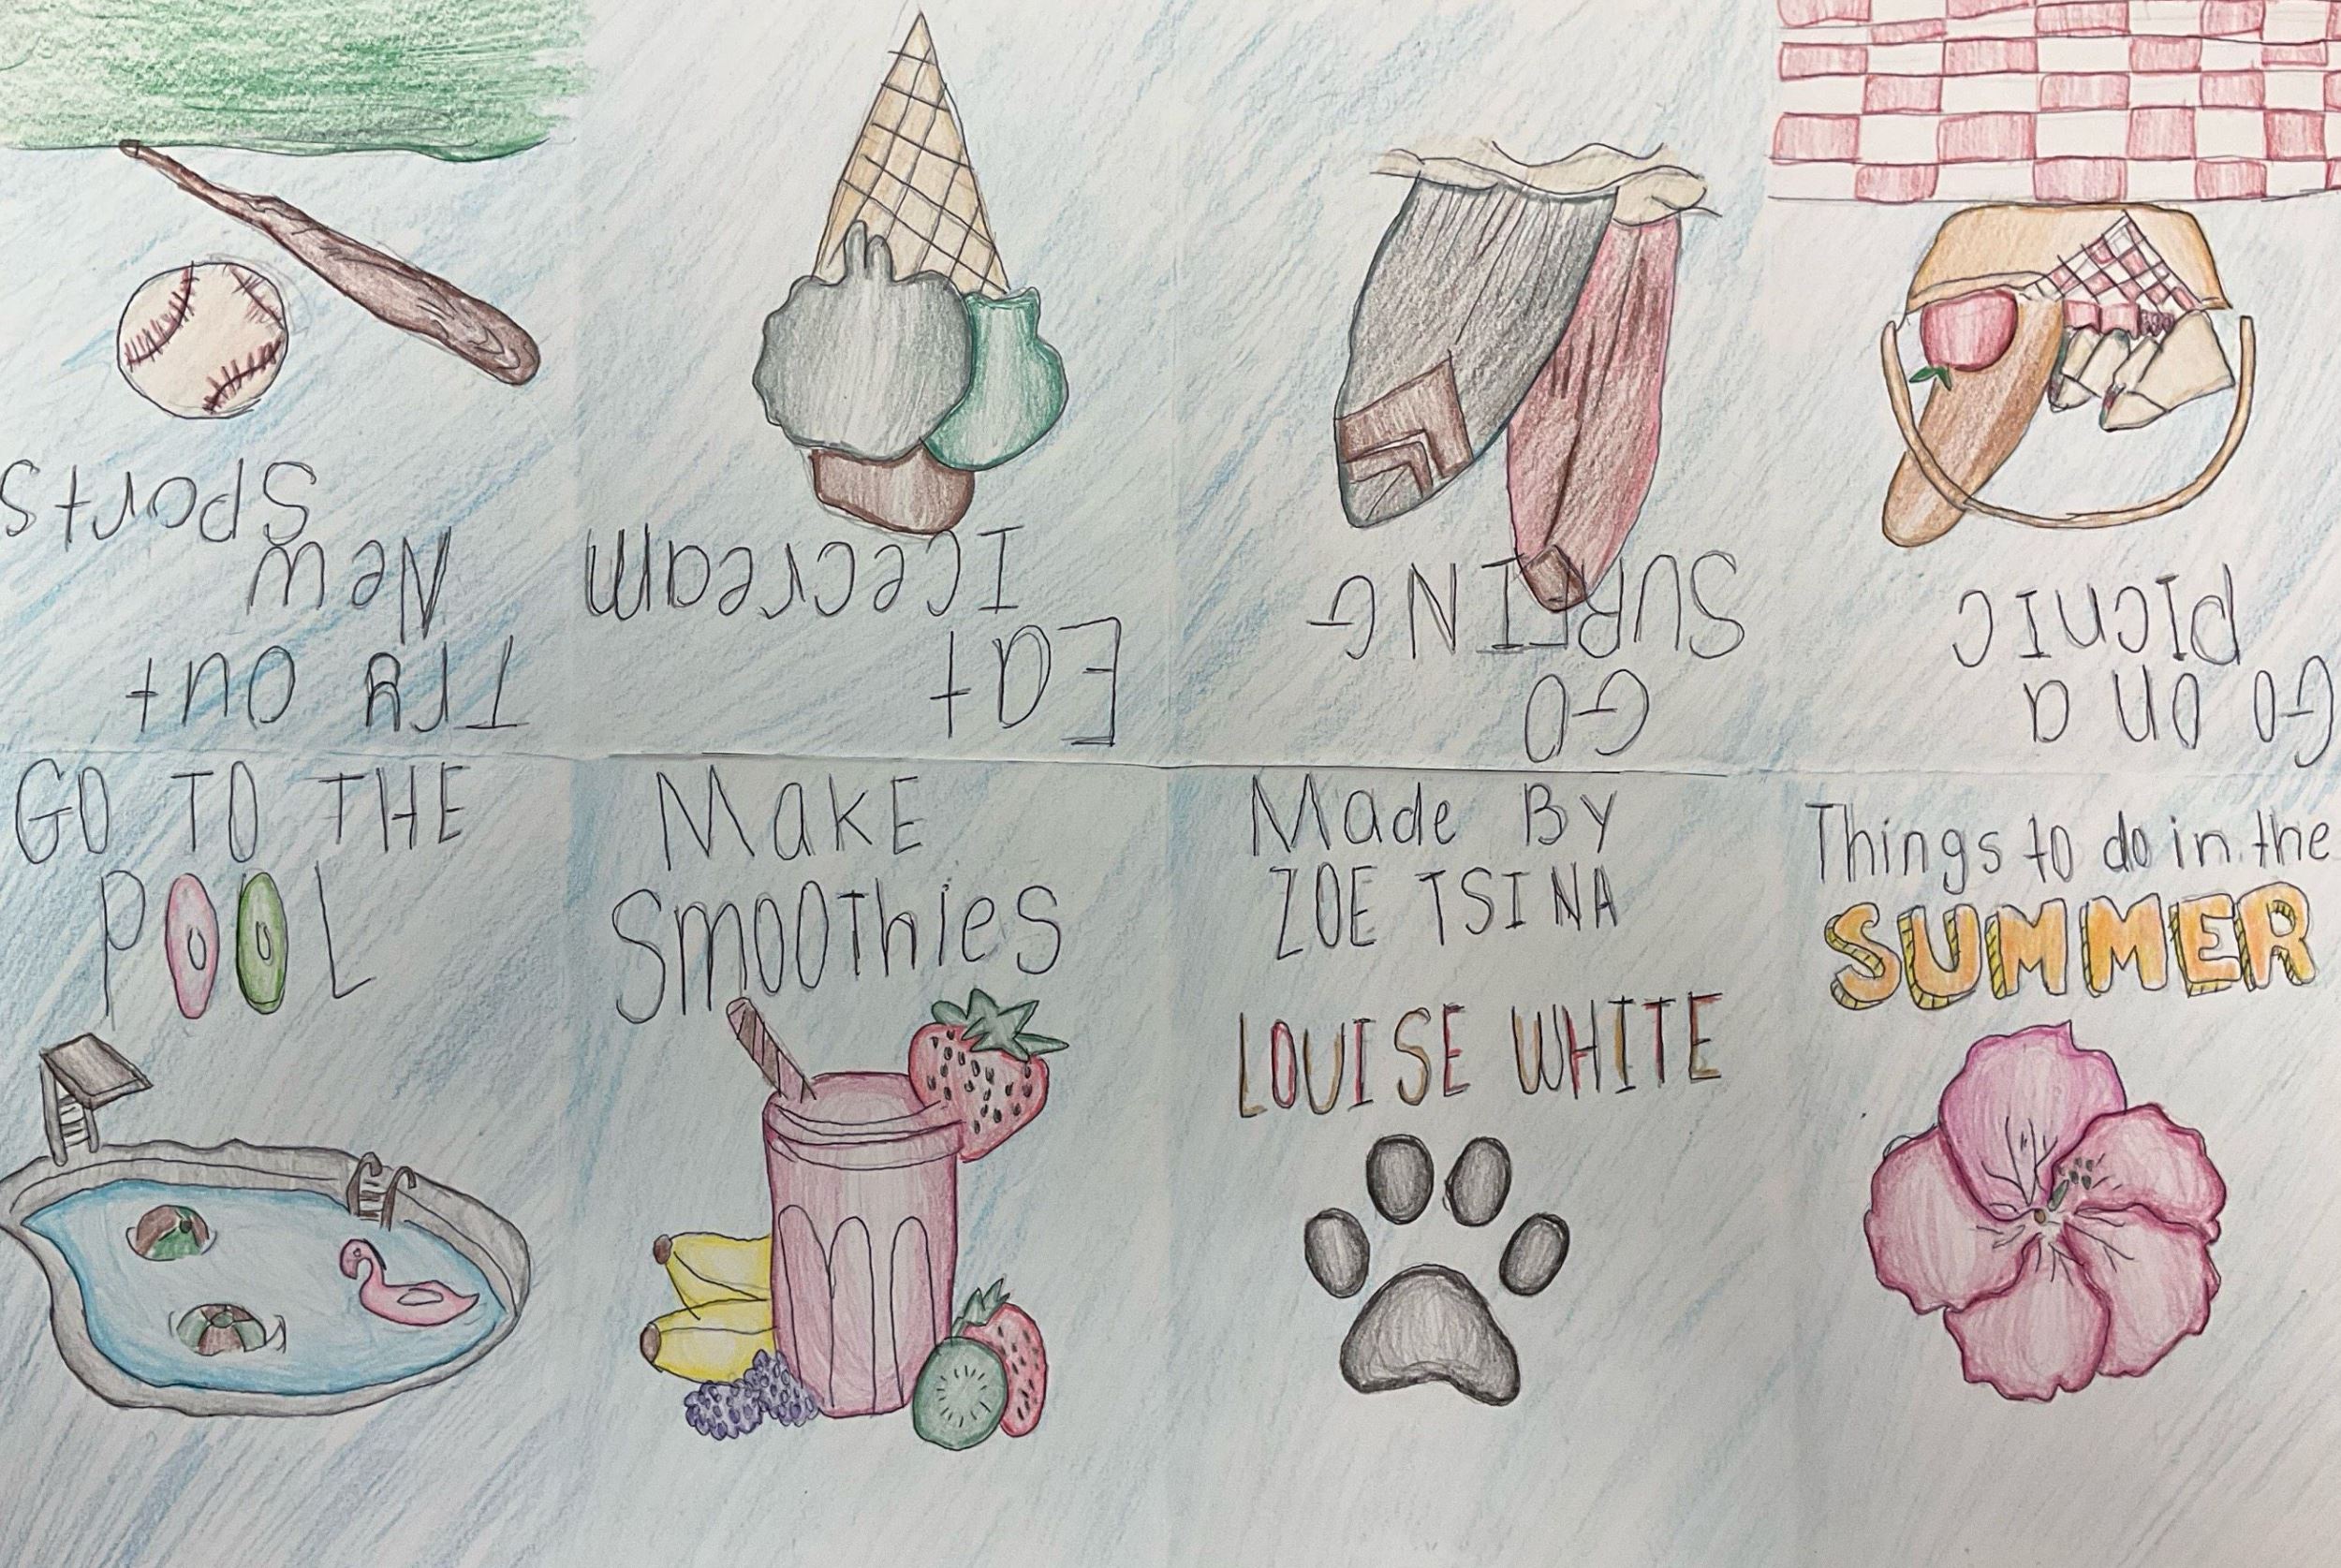 Try out
New
Sports
Eat
Icecream
GO
SURFING
Go on a
picnic
GO TO THE
POOL
Make
Smoothies
Made By
ZOE TSINA
LOUISE WHITE
Things to do in the
SUMMER